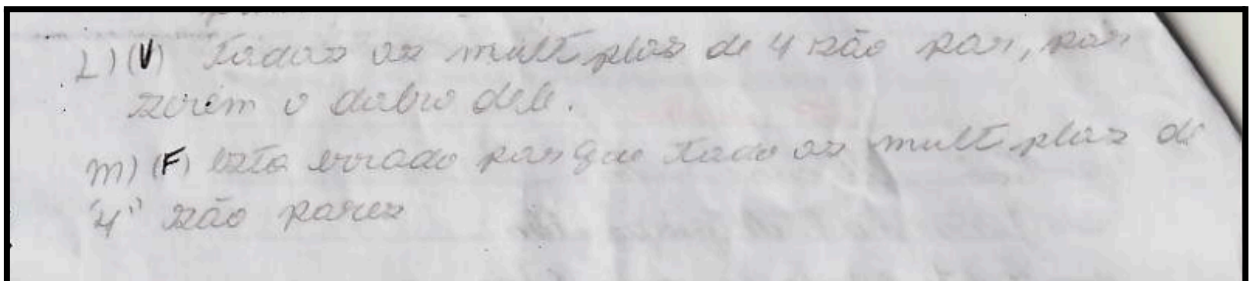 L) (V) Todos os multiplos de 4 são par, por
serem o dobro dele.
m) (F) esta errado porque todo os multiplos de
"4" são pares